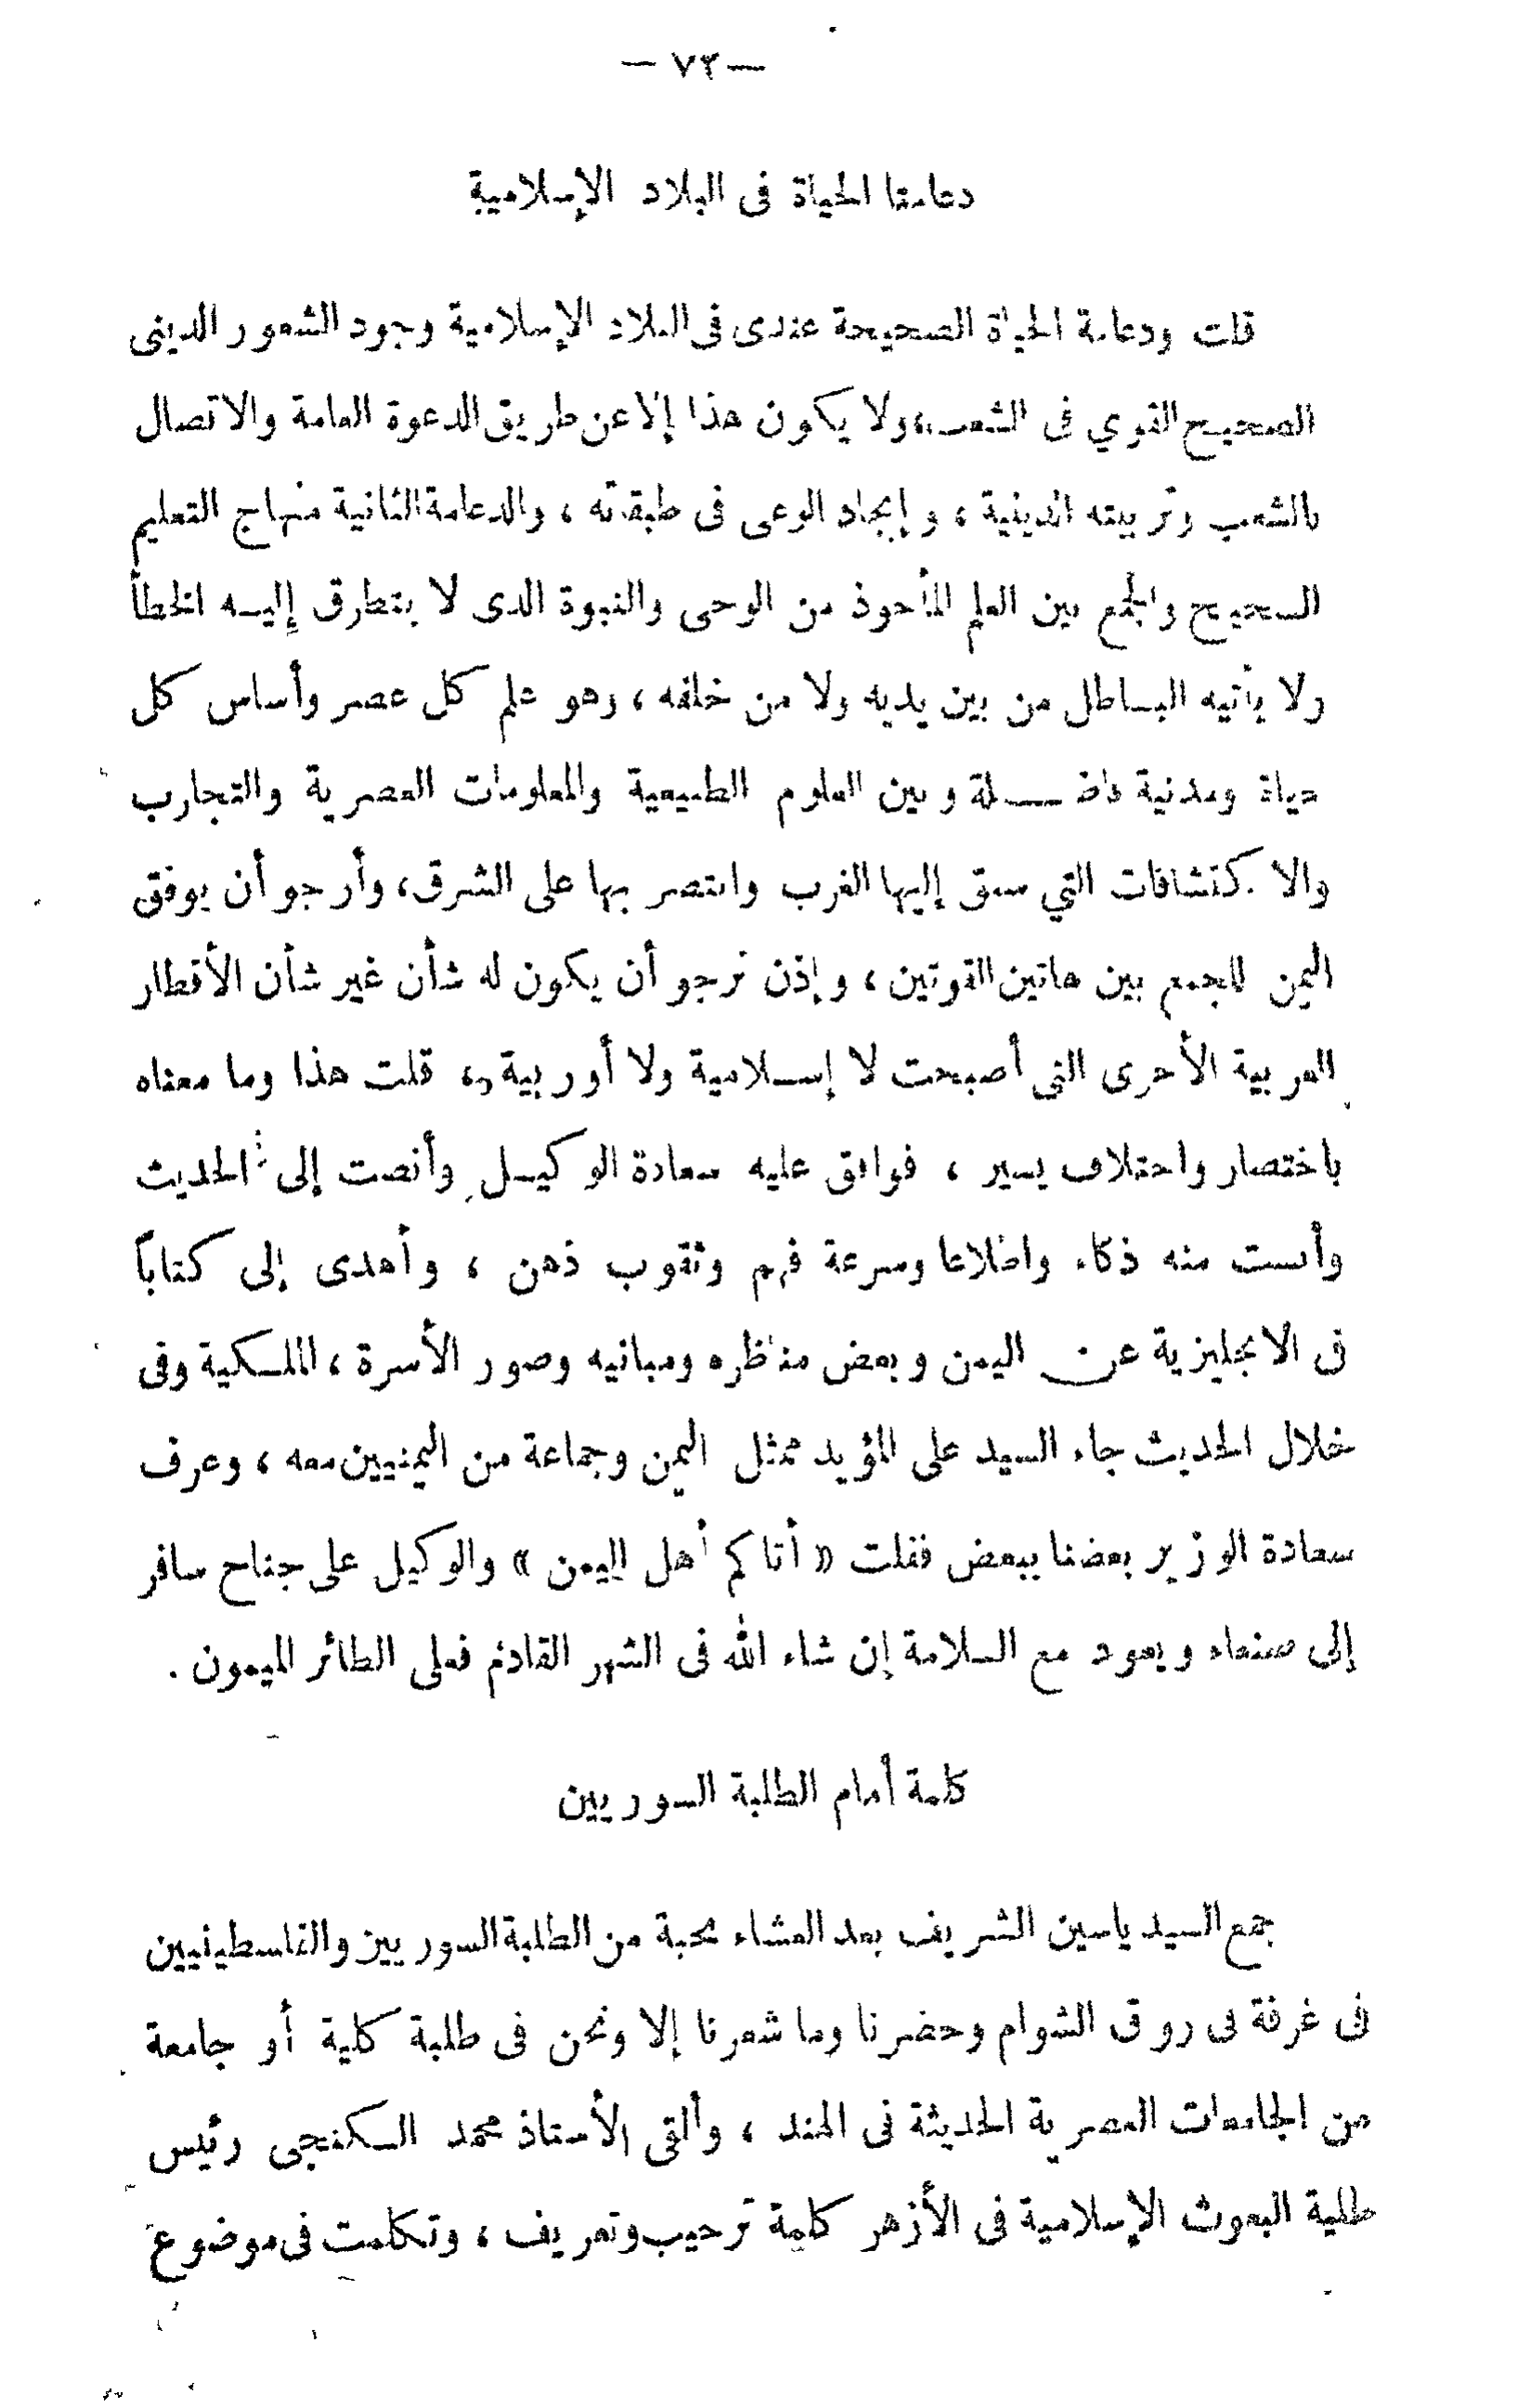 — ٧٣ —
دعامتا الحياة فى البلاد الإسلامية
قلت ودعامة الحياة الصحيحة عندى فى البلاد الإسلامية وجود الشعور الدينى
الصحيح القوي فى الشعب، ولا يكون هذا إلا عن طريق الدعوة العامة والاتصال
بالشعب وتربيته الدينية ، وإيجاد الوعى فى طبقاته ، والدعامة الثانية منهاج التعليم
الصحيح والجمع بين العلم المأخوذ من الوحى والنبوة الذى لا يتطرق إليه الخطأ
ولا يأتيه الباطل من بين يديه ولا من خلفه ، وهو علم كل عصر وأساس كل
حياة ومدنية فاضلة وبين العلوم الطبيعية والمعلومات العصرية والتجارب
والاكتشافات التي سبق إليها الغرب وانتصر بها على الشرق، وأرجو أن يوفق
اليمن للجمع بين هاتين القوتين ، وإذن نرجو أن يكون له شأن غير شأن الأقطار
العربية الأخرى التى أصبحت لا إسلامية ولا أوربية، قلت هذا وما معناه
باختصار واختلاف يسير ، فوافق عليه سعادة الوكيل وأنصت إلى الحديث
وأنست منه ذكاء واطلاعا وسرعة فهم وثقوب ذهن ، وأهدى إلى كتاباً
فى الانجليزية عن اليمن وبعض مناظره ومبانيه وصور الأسرة ، الملكية وفى
خلال الحديث جاء السيد على المؤيد ممثل اليمن وجماعة من اليمنيين معه ، وعرف
سعادة الوزير بعضنا ببعض فقلت « أتاكم أهل اليمن » والوكيل على جناح سافر
إلى صنعاء ويعود مع السلامة إن شاء الله فى الشهر القادم فعلى الطائر الميمون .
كلمة أمام الطلبة السوريين
جمع السيد ياسين الشريف بعد العشاء نخبة من الطلبة السوريين والفلسطينيين
فى غرفة فى روق الشوام وحضرنا وما شعرنا إلا ونحن فى طلبة كلية أو جامعة
من الجامعات العصرية الحديثة فى الهند ، وألقى الأستاذ محمد السكنجى رئيس
طلبة البعوث الإسلامية فى الأزهر كلمة ترحيب وتعريف ، وتكلمت فى موضوع